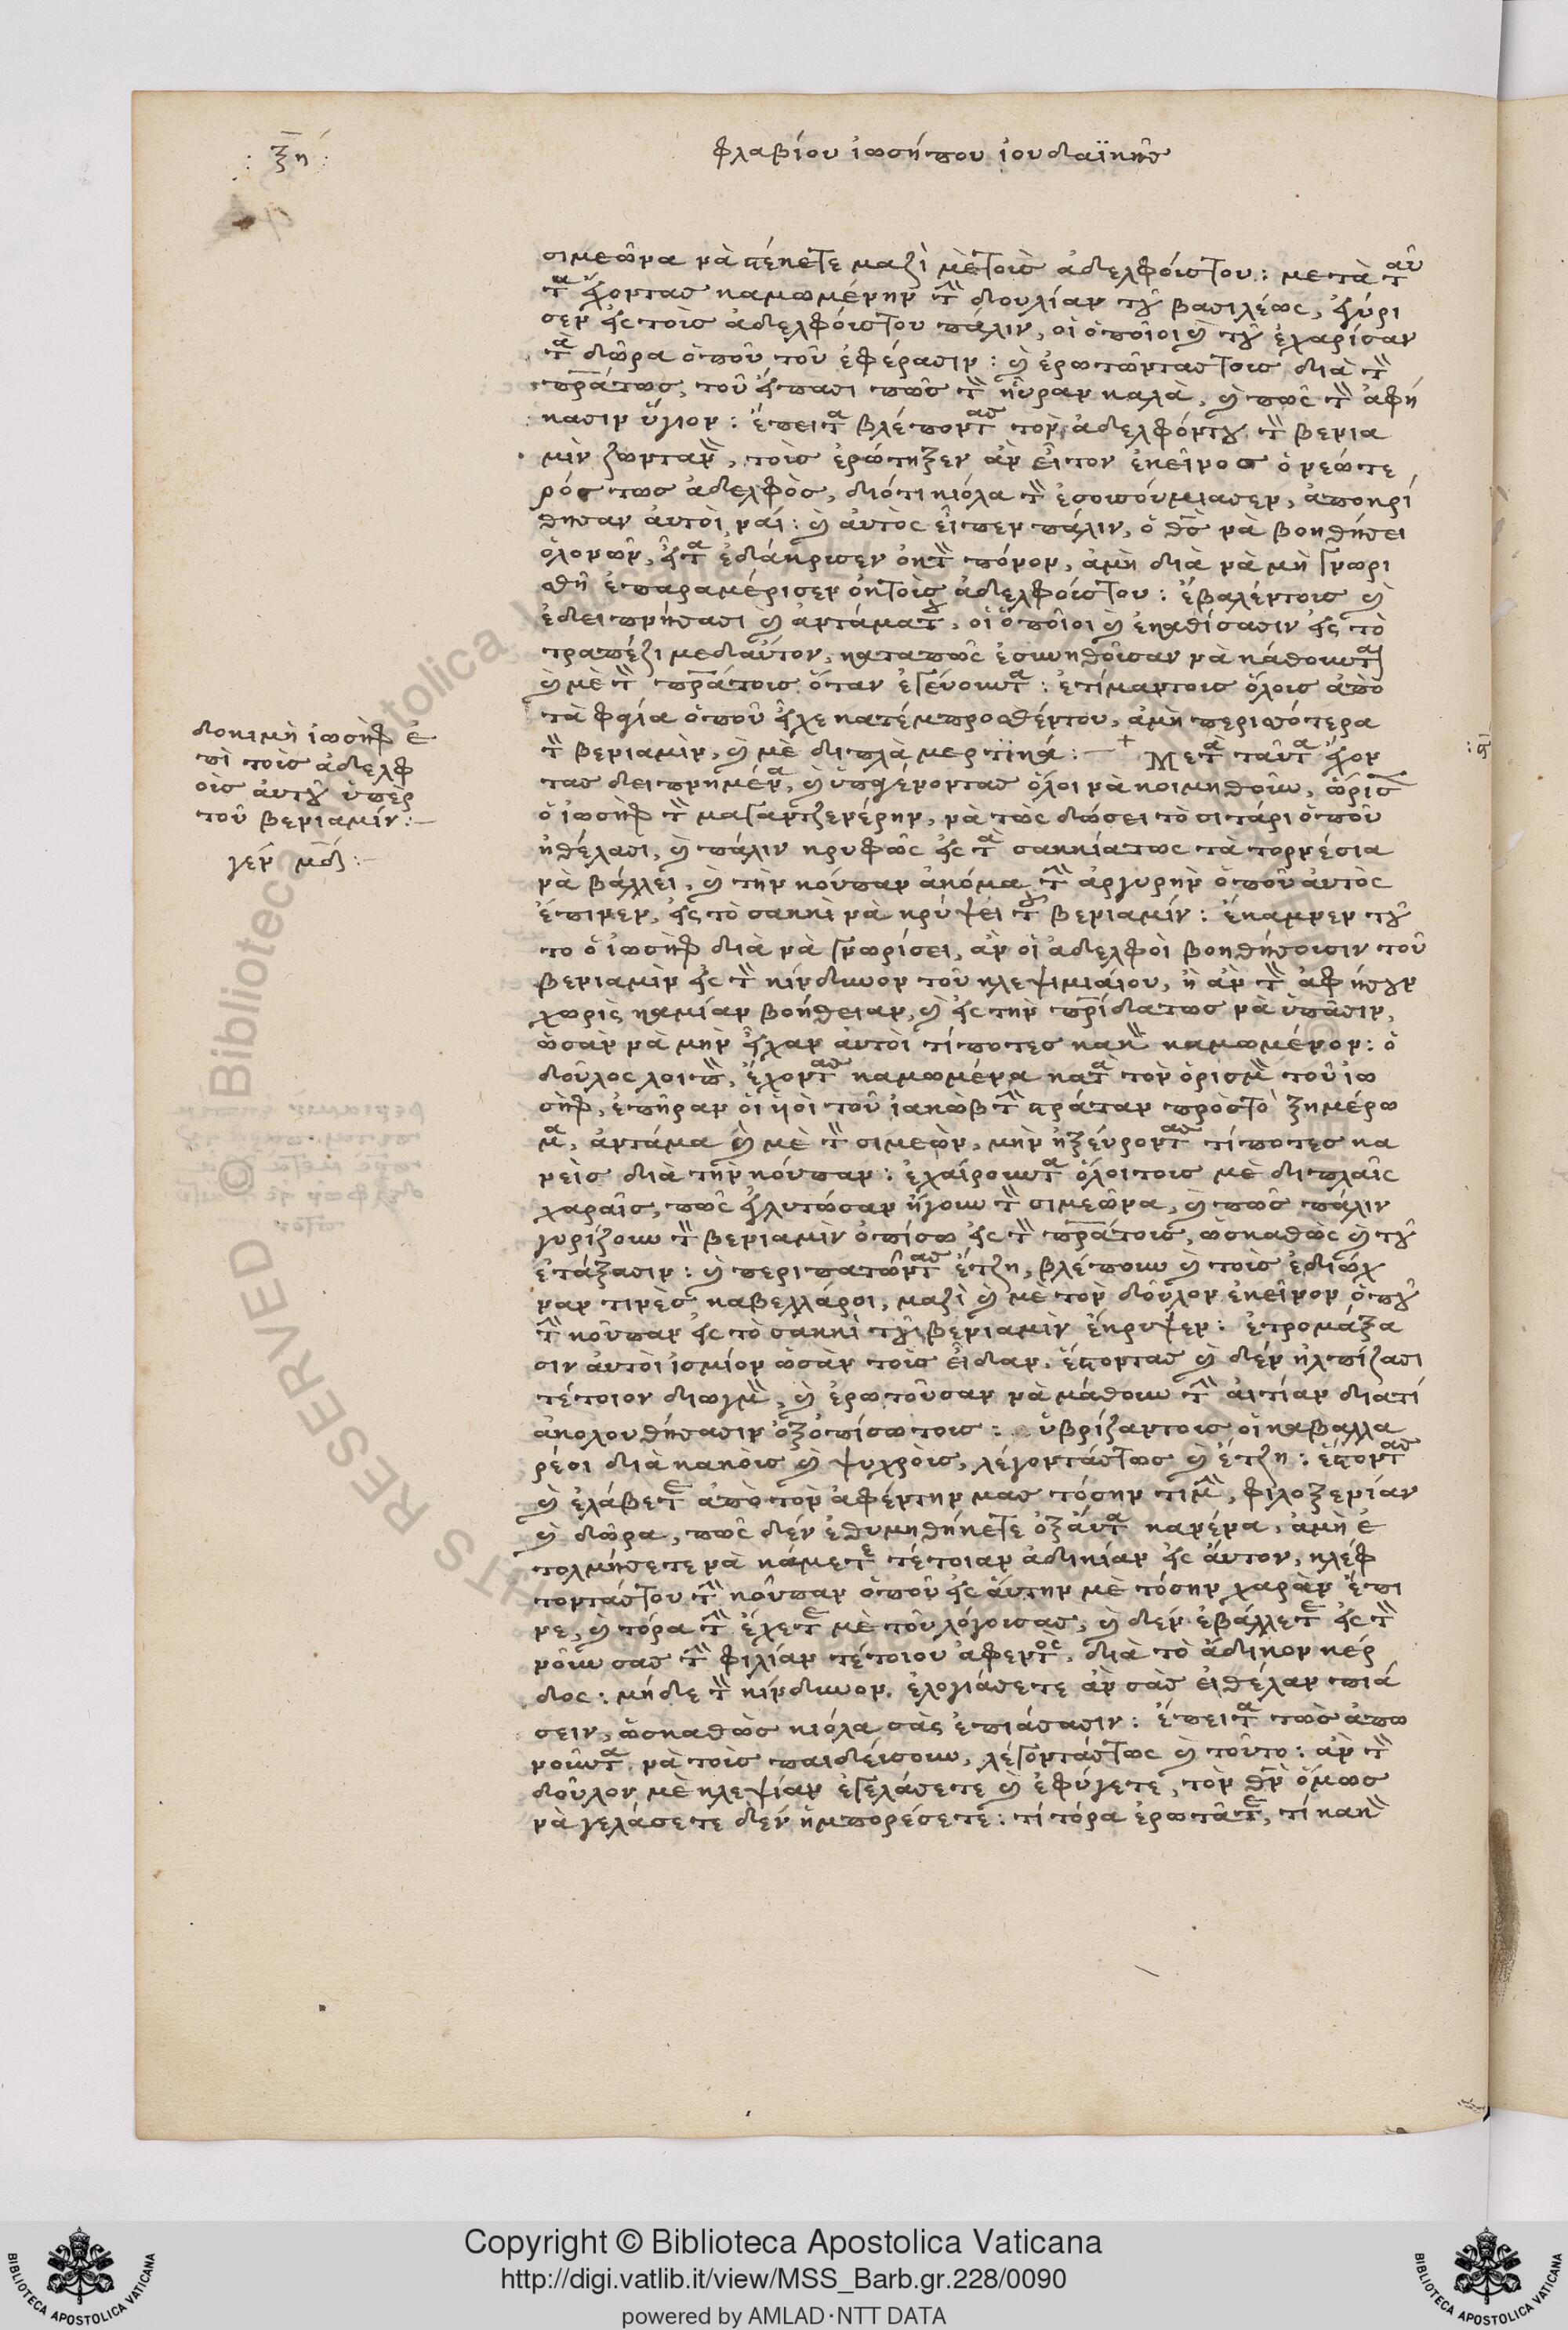 : ξη :
φλαβίου ἰωσήπου ἰουδαϊκῆς
σιμεῶνα νὰ στέκετε μαζὶ μὲ τοὶς ἀδελφόις του : μετὰ ταῦ
τα ἔχοντας καμωμένην τὴν δουλίαν τοῦ βασιλέως, ἐγύρι
σεν εἰς τοὶς ἀδελφόις του πάλιν, οἱ ὁποῖοι καὶ τοῦ ἐχαρίσαν
τὰ δῶρα ὁποῦ τοῦ ἐφέρασιν : καὶ ἐρωτῶντας τοις διὰ τὸν
πατέρα τως, τοῦ εἴπασι πῶς τὸν ηὗραν καλὰ, καὶ πῶς τὸν ἀφή
κασιν ὕγιον : ἔπειτα βλέποντας τὸν ἀδελφόν του τὸν βενια
μὶν ζωντανὸν, τοὶς ἐρώτηξεν ἂν εἶτον ἐκεῖνος ὁ νεώτε
ρός τως ἀδελφὸς, διότι κιόλα τὸν ἐσοπούμιασεν, ἀποκρί
θησαν ἀυτοὶ, ναί : καὶ ἀυτὸς εἶπεν πάλιν, ὁ θεὸς νὰ βοηθήσει
ὁλονῶν, εἶτα ἐδάκρισεν ὀκ τὸν πόνον, ἀμὴ διὰ νὰ μὴ γνωρι
θῆ ἐπαραμέρισεν ὀκ τοὶς ἀδελφόις του : ἐβαλέν τοις καὶ
ἐδειπνήσασι καὶ ἀντάμα του, οἱ ὁποῖοι καὶ ἐκαθίσασιν εἰς τὸ
τραπέζι μεδαῦτον, καταπῶς ἐσυνηθοῖσαν νὰ κάθουνται
καὶ μὲ τὸν πατέρα τοις ὅταν ἐγεύουνται : ἐτίμαν τοις ὅλοις ἀπὸ
τὰ φαγία ὁποῦ εἶχε κατέμπροσθέν του, ἀμὴ περισσότερα
τὸν βενιαμὶν, καὶ μὲ διπλὰ μερτϊκά : — + Μετὰ ταῦτα ἔχον
τας δειπνημένα, καὶ ὑπαγένοντας ὅλοι νὰ κοιμηθοῦν, ὥρισεν
ὁ ἰωσὴφ τὸν μαγαντζενέρην, νὰ τὼς δώσει τὸ σιτάρι ὁποῦ
ἠθέλασι, καὶ πάλιν κρυφῶς εἰς τὰ σακκία τως τὰ τορνέσια
νὰ βάλλει, καὶ τὴν κούπαν ἀκόμα τὴν ἀργυρὴν ὁποῦ ἀυτὸς
ἔπινεν, εἰς τὸ σακκὶ νὰ κρύψει τοῦ βενιαμίν : ἔκαμνεν τοῦ
το ὁ ἰωσὴφ διὰ νὰ γνωρίσει, ἂν οἱ ἀδελφοὶ βοηθήσουσιν τοῦ
βενιαμὶν εἰς τὸν κίνδυνον τοῦ κλεψιμιάιου, ἢ ἂν τὸν ἀφήσουν
χωρὶς καμίαν βοήθειαν, καὶ εἰς τὴν πατρίδα τως νὰ ὑπᾶσιν,
ὡσὰν νὰ μὴν εἶχαν ἀυτοὶ τίποτες κακὸν καμωμένον : ὁ
δοῦλος λοιπὸν, ἔχοντας καμωμένα κατὰ τὸν ὁρισμὸν τοῦ ἰω
σὴφ, ἐπῆραν οἱ ὑιοὶ τοῦ ἰακὼβ τὴν στράταν πρὸς τὸ ξημέρω
μα, ἀντάμα καὶ μὲ τὸν σιμεὼν, μὴν ἠξεύροντας τίποτες κα
νεὶς διὰ τὴν κούπαν : ἐχαίρουνταν ὅλοι τοις μὲ διπλαῖς
χαραῖς, πῶς ἐγλυτώσαν ἤγουν τὸν σιμεῶνα, καὶ πῶς πάλιν
γυρίζουν τὸν βενιαμὶν ὀπίσω εἰς τὸν πατέρα τοις, ὡσκαθὼς καὶ τοῦ
ἐτάξασιν : καὶ περιπατῶντας ἔτζη, βλέπουν καὶ τοὶς ἐδιώχ
ναν τινὲς καβελλάροι, μαζὶ καὶ μὲ τὸν δοῦλον ἐκεῖνον ὁποῦ
τὴν κοῦπαν εἰς τὸ σακκὶ τοῦ βενιαμὶν ἔκρυψεν : ἐτρομάξα
σιν ἀυτοὶ ἰσμίον ὡσὰν τοὶς εἶδαν, ἔστοντας καὶ δὲν ἠλπίζασι
τέτοιον διωγμὸν, καὶ ἐρωτοῦσαν νὰ μάθουν τὴν ἀιτίαν διατί
ἀκολουθήσασιν ὀξοπίσω τοις : ὑβρίζαν τοις οἱ καβαλλα
ρέοι διὰ κακόις καὶ ψυχρόις, λέγοντάς τως καὶ ἔτζη : ἔστοντας
καὶ ἐλάβετε ἀπὸ τὸν ἀφέντην μας τόσην τιμὴν, φιλοξενίαν
καὶ δῶρα, πῶς δὲν ἐθυμηθήκετε ὀξάυτα κανένα, ἀμὴ ἐ
τολμήσετε νὰ κάμετε τέτοιαν ἀδικίαν εἰς ἄυτον, κλέφ
τοντάς του τὴν κοῦπαν ὁποῦ εἰς ἄυτην μὲ τόσην χαρὰν ἔπι
νε, καὶ τόρα τὴν ἔχετε μὲ τοῦ λόγοισας, καὶ δὲν ἐβάλλετε εἰς τὸν
νοῦν σας τὴν φιλίαν τέτοιου ἀφεντὸς, διὰ τὸ ἄδικον κέρ
δος : μήδε τὸν κίνδυνον ἐλογιάσετε ἂν σὰς εἰθέλαν πιά
σειν, ὡσκαθὼς κιόλα σὰς ἐπιάσασιν : ἔπειτα τὼς ἀπω
νοῦνται νὰ τοὶς παιδέισουν, λέγοντάς τως καὶ τοῦτο : ἂν τὸν
δοῦλον μὲ κλεψίαν ἐγελάσετε καὶ ἐφύγετε, τὸν θεὸν ὅμως
νὰ γελάσετε δὲν ἠμπορέσετε : τί τόρα ἐρωτᾶτε, τί κακὸν
δοκιμὴ ἰωσὴφ ἐ
πὶ τοὶς ἀδελφ
οὶς ἀυτοῦ ὑπὲρ
τοῦ βενιαμίν :—
γέν μδ :—
Copyright © Biblioteca Apostolica Vaticana
http://digi.vatlib.it/view/MSS_Barb.gr.228/0090
powered by AMLAD·NTT DATA
BIBLIOTECA APOSTOLICA VATICANA
BIBLIOTECA APOSTOLICA VATICANA